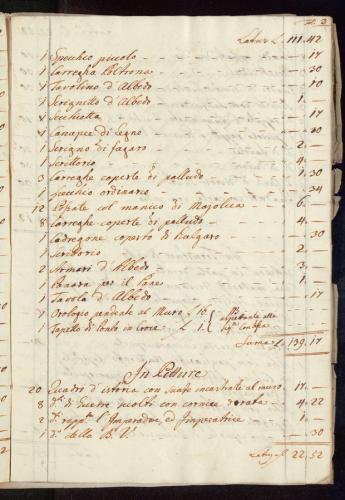 N. 3
Latus L. 111.42
1 Specchio piccolo — .17
1 Carregha Poltrona — .30
1 Tavolino d'Albedo — .10
1 Scrignetto d'Albedo — 1. —
1 Secchietta — .17
1 Canapee di legno — .40
1 Scrigno di fagaro — 2. —
1 Scrittorio — 4. —
3 Carreghe coperte di 1.30
1 Specchio ordinario — .34
12 col manico di Majolica — 6. —
8 Carreghe coperte di 4. —
1 Cadregone coperto di Bulgaro — .30
1 Scrittorio — 2. —
2 Armari d'Albedo — 3. —
1 Panara per il Pane — 1. —
1 Tavola d'Albedo — .17
1 Orologio pendente al Muro L. 16
1 Tapetto di in Croce L. 1
Suma L. 139.17
In Pitture
20 Quadri d'istoria con incastrate al muro 17. —
8 d.i di piccoli con cornice dorata — 4.22
2 d.i rapp.ti l'Imperadore, ed Imperatrice — 1. —
1 d.o della B. V. — .30
22.52